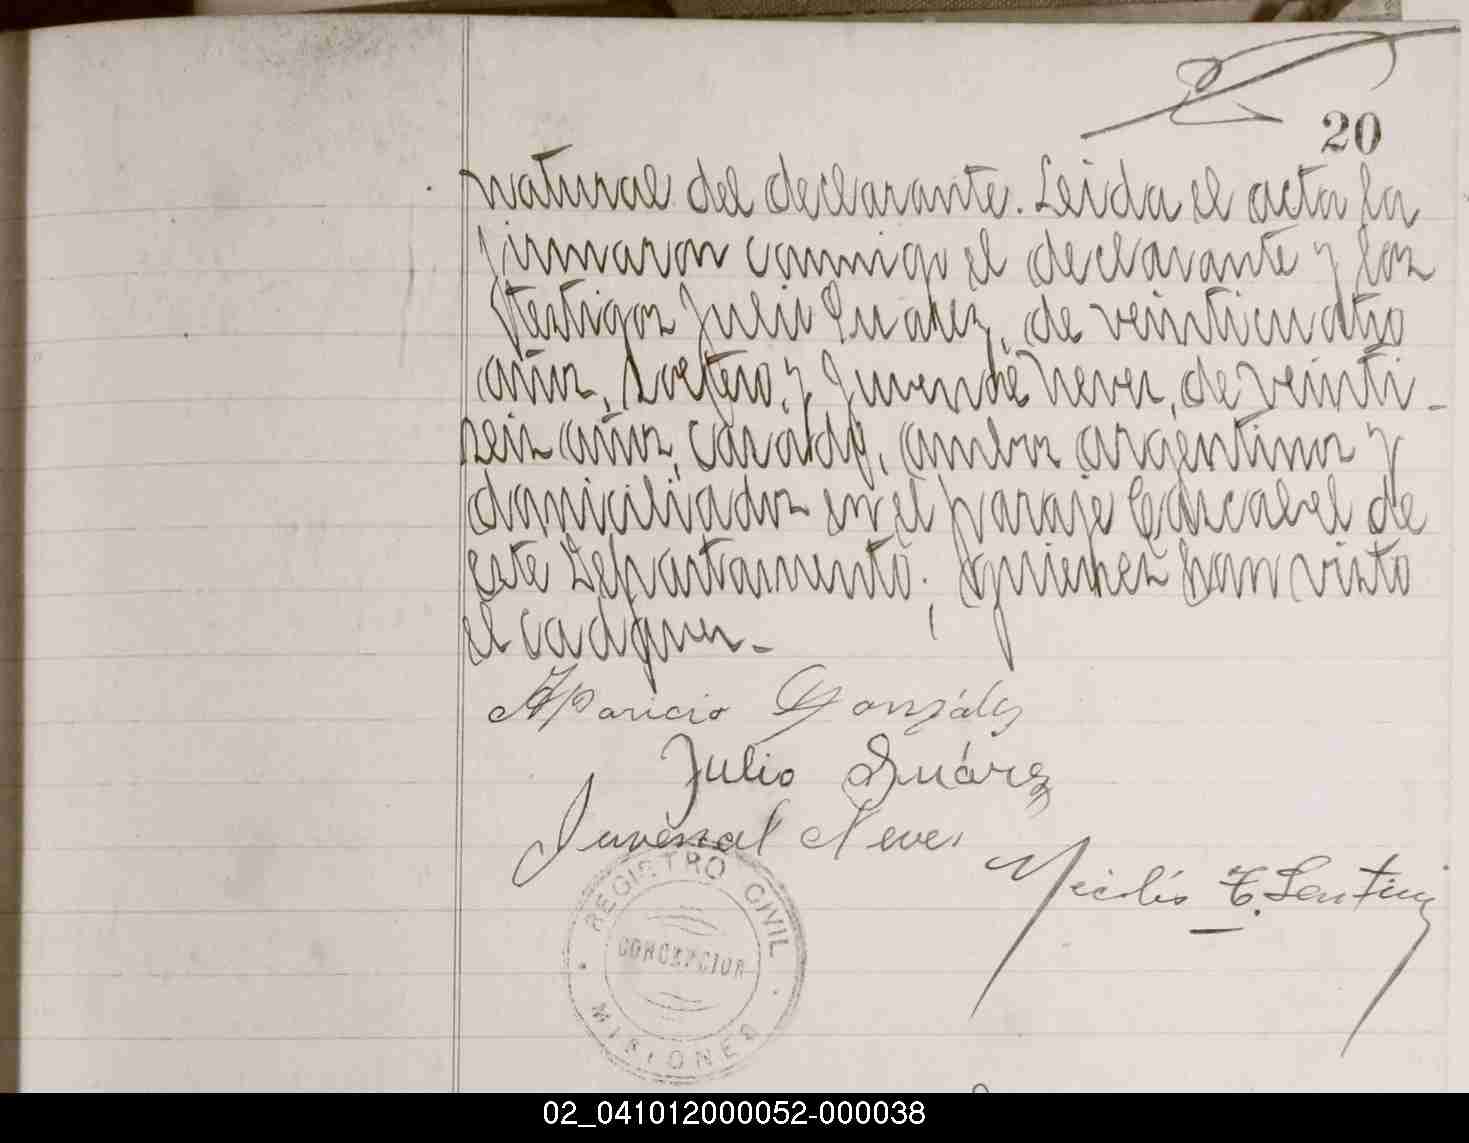 20
natural del declarante. Leida el acta la
firmaron conmigo el declarante y los
testigos Julio Suarez, de veinticuatro
años, soltero, y Juvenal Neves, de veinti-
seis años, casado, ambos argentinos y
domiciliados en el paraje Cascabel de
este Departamento; quienes han visto
el cadaver.-
Aparicio González
Julio Suárez
Juvenal Neves
Nicolás T. Sentini
REGISTRO CIVIL
CONCEPCION
MISIONES
02_041012000052-000038